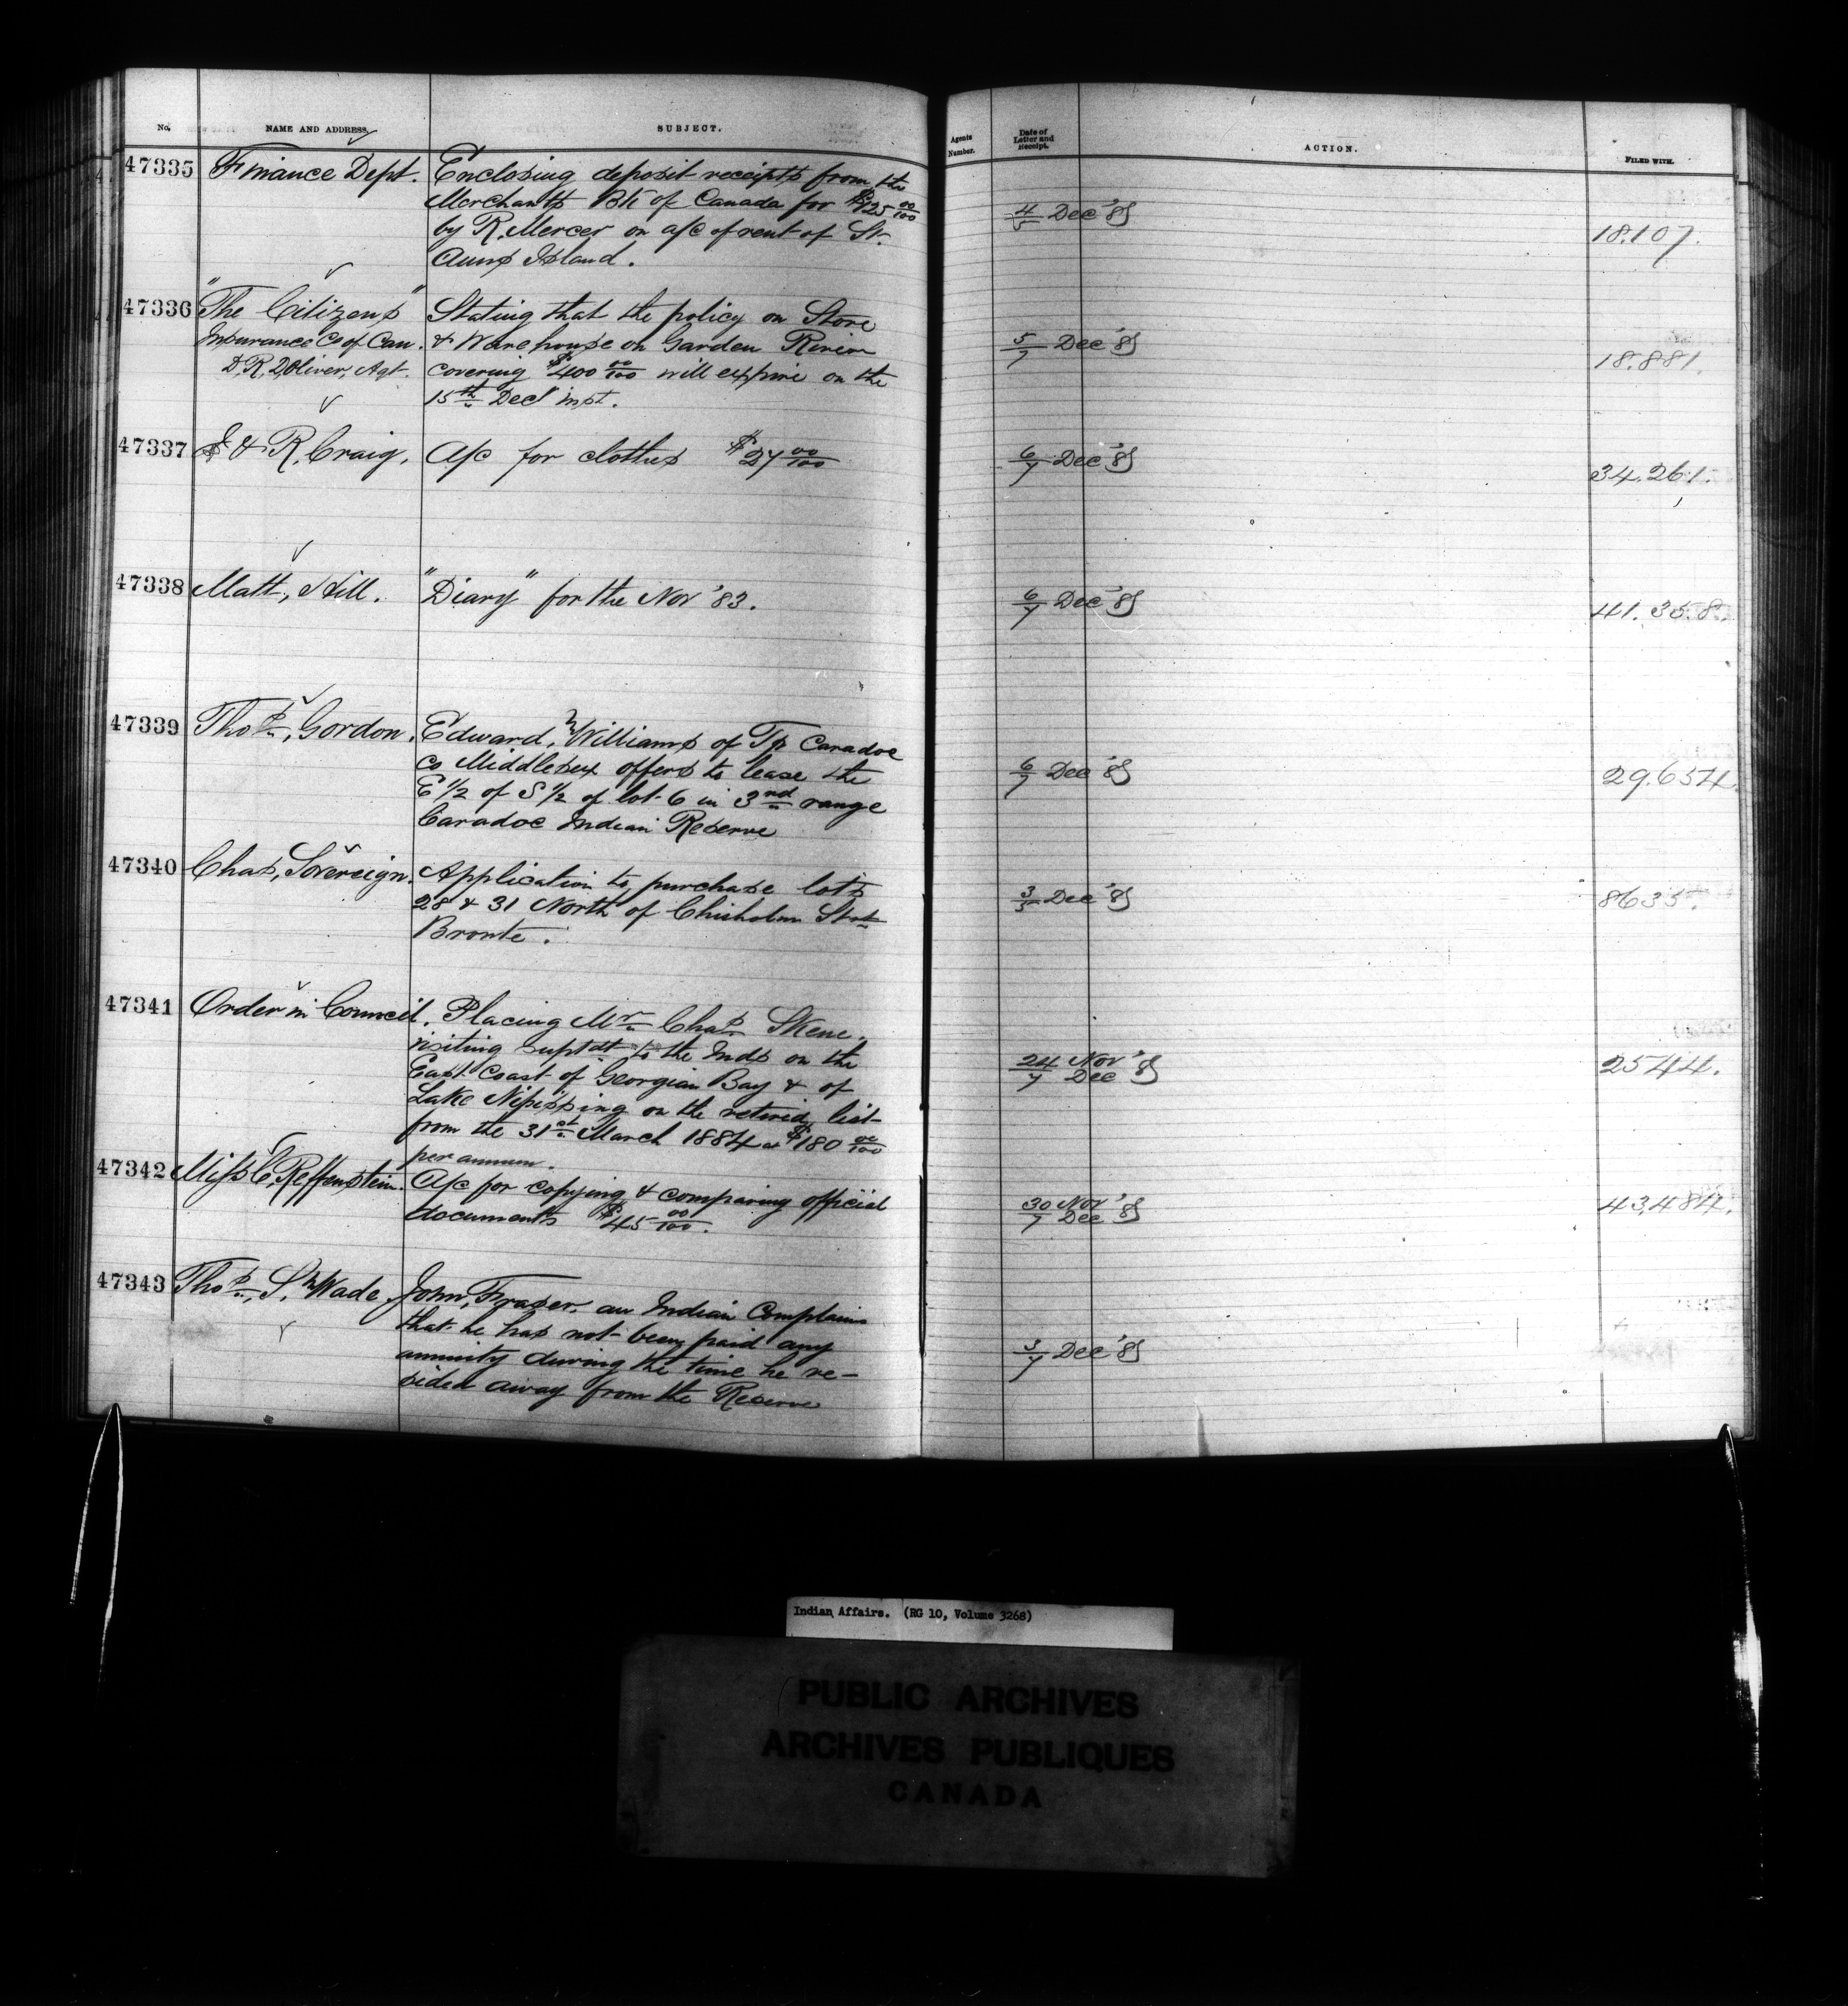 No. NAME AND ADDRESS. SUBJECT. Agents Number. Date of Letter and Receipt. ACTION. FILED WITH.
47335 Finance Dept. Enclosing deposit receipts from the
Merchants Bk of Canada for $125 00/100 4/5 Dec '83
by R. Mercer on a/c of rent of St. 18.107.
Anns Island.
47336 "The Citizens" Stating that the policy on Store
Insurance Co of Can. & Warehouse on Garden River 5/7 Dec '83
D. R. Oliver, Agt. covering $400 00/100 will expire on the 18.881.
15th Decr inst.
47337 J & R. Craig. A/c for clothes $27 00/100 6/7 Dec '83 34.261.
47338 Matt, Hill. "Diary" for the Nov '83. 6/7 Dec '83 41.358.
47339 Thos., Gordon. Edward, Williams of Tp Caradoc
Co Middlesex offers to lease the 6/7 Dec '83 29.654.
E 1/2 of S 1/2 of lot 6 in 3rd range
Caradoc Indian Reserve
47340 Chas, Sovereign. Application to purchase lots
28 & 31 North of Chisholm Street 3/5 Dec '83 8635.
Bronte.
47341 Order in Council. Placing Mr Chas Skene.
visiting suptdt to the Inds on the
East Coast of Georgian Bay & of 24 Nov / 7 Dec '83 2544.
Lake Nipissing on the retired list
from the 31st March 1884 at $180 00/100
per annum.
47342 Miss C. Reffenstein. A/c for copying & comparing official 30 Nov / 7 Dec '83 43.484.
documents $45 00/100.
47343 Thos., S. Wade. John, Fraser, an Indian Complains
that he has not been paid any
annuity during the time he re- 5/7 Dec '83
sided away from the Reserve
Indian Affairs. (RG 10, Volume 3268)
PUBLIC ARCHIVES
ARCHIVES PUBLIQUES
CANADA